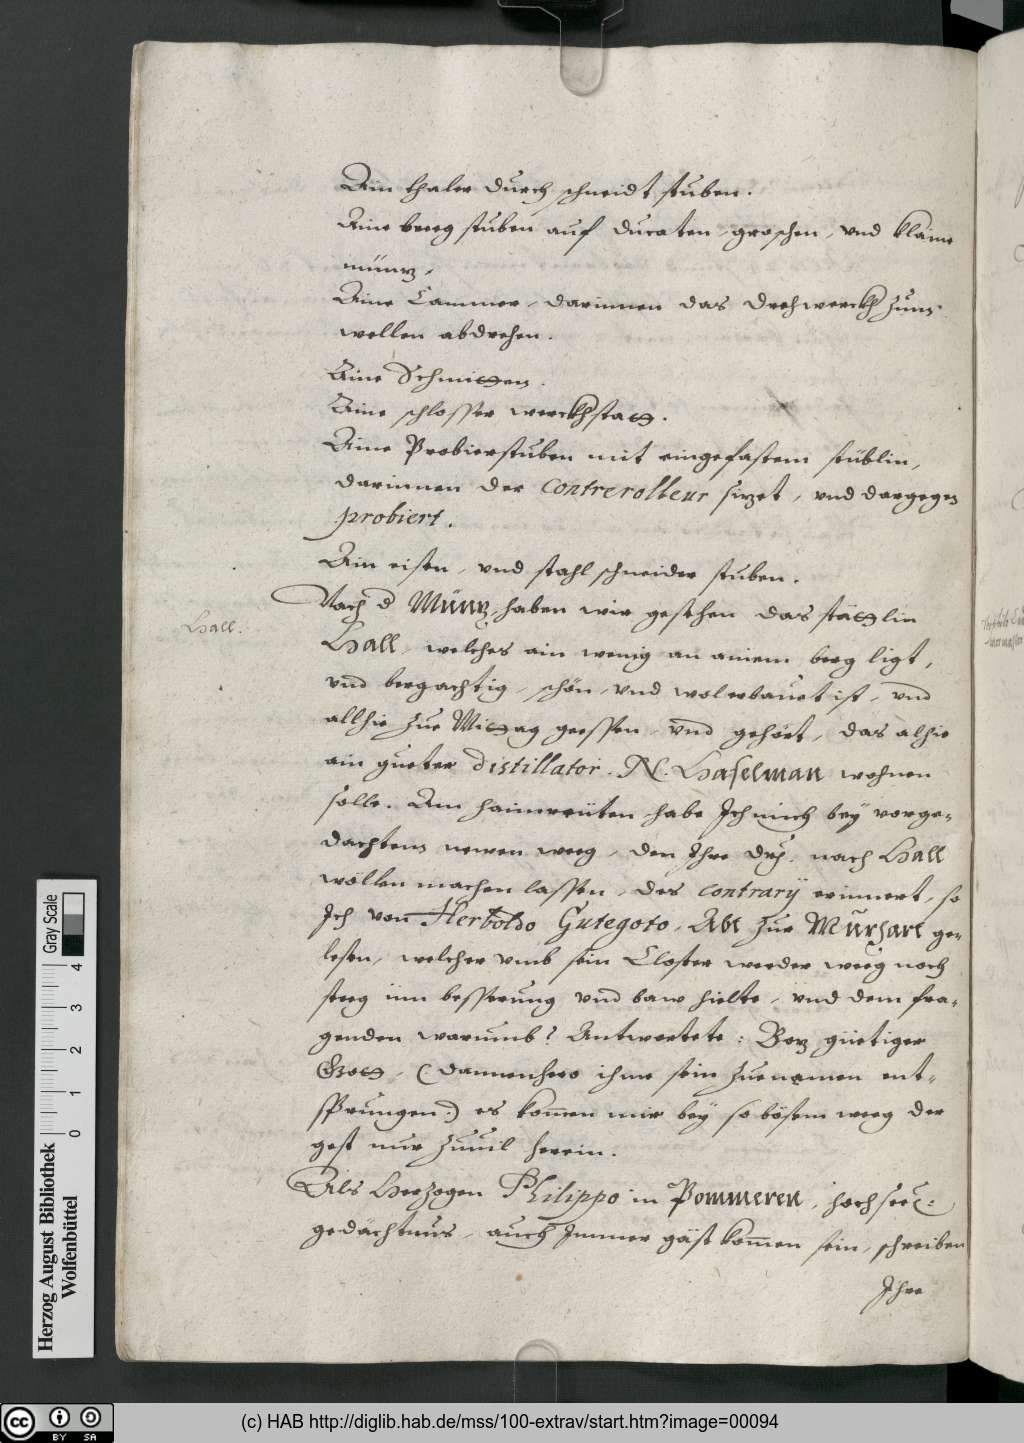 Ain thaler durch schneidt stuben.
Aine breeg stuben auf ducaten, groschen, vnd klaine
müntz,
Aine Cammer, darinnen das drehwerckh zum
wellen abdrehen.
Aine Schmitten.
Aine schlosser werckhstatt.
Aine Probierstuben mit eingefastem stüblin,
darinnen der Contrerolleur sitzet, vnd dargegen
probiert.
Ain eisen, vnd stahl schneider stuben.
Nach d Müntz, haben wir gesehen das stättlin
Hall.
Hall, welches ain wenig an ainem berg ligt,
vnd bergachtig, schön, vnd wolerbauet ist, vnd
alhie zue Mittag geessen, vnd gehört, das alhie
ain gueter distillator. N. Haselman wohnen
solle. Am haimreüten, habe Ich mich bey vorge-
dachtem newen weeg, den Ihre Dht. nach Hall
wöllen machen lassen, des contrarÿ erinnert, so
Ich von Herboldo Gutegoto, Abt zue Mūrhart ge-
lesen, welcher vmb sein Closter weeder weeg noch
steeg inn besserung vnd baw hielte, vnd dem fra-
genden warumb? Antwortete: Botz güetiger
Gott, (dannenhero ihme sein zuenamen ent-
sprungen.) es kom̄en mir bey so bösem weeg der
gest nur zuuil herein.
Als Hertzogen Philippo in Pommeren, hochseel:
gedächtnus, auch Immer gäst kom̄en sein, schreiben
Ihre
Gray Scale
0 1 2 3 4
Herzog August Bibliothek
Wolfenbüttel
cc BY SA
(c) HAB http://diglib.hab.de/mss/100-extrav/start.htm?image=00094